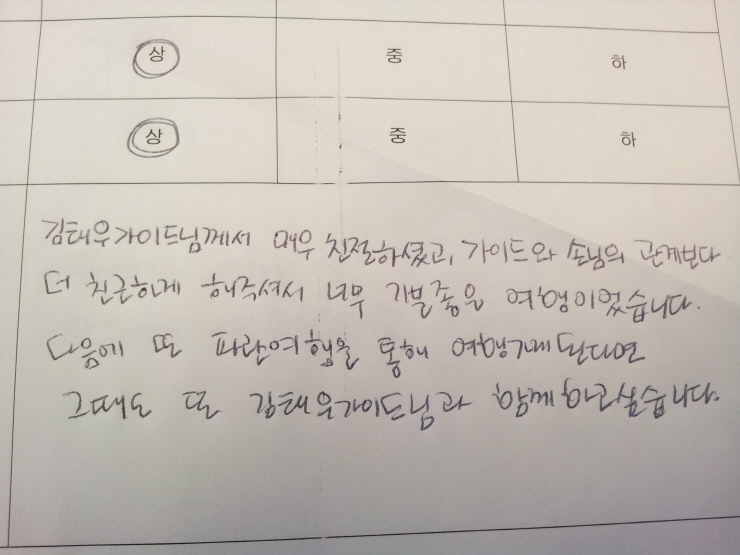 상 중 하
상 중 하
김태우가이드님께서 매우 친절하셨고, 가이드와 손님의 관계보다
더 친근하게 해주셔서 너무 기분좋은 여행이었습니다.
다음에 또 파란여행을 통해 여행가게된다면
그때도 또 김태우가이드님과 함께하고싶습니다.